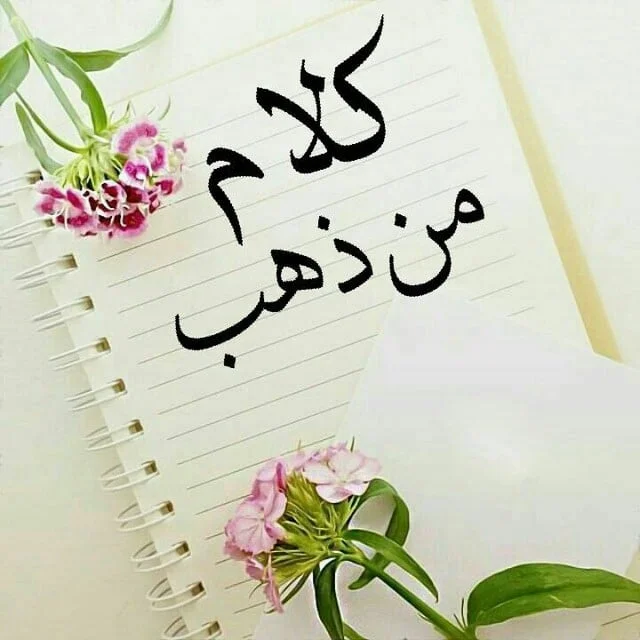 كلام
من ذهب